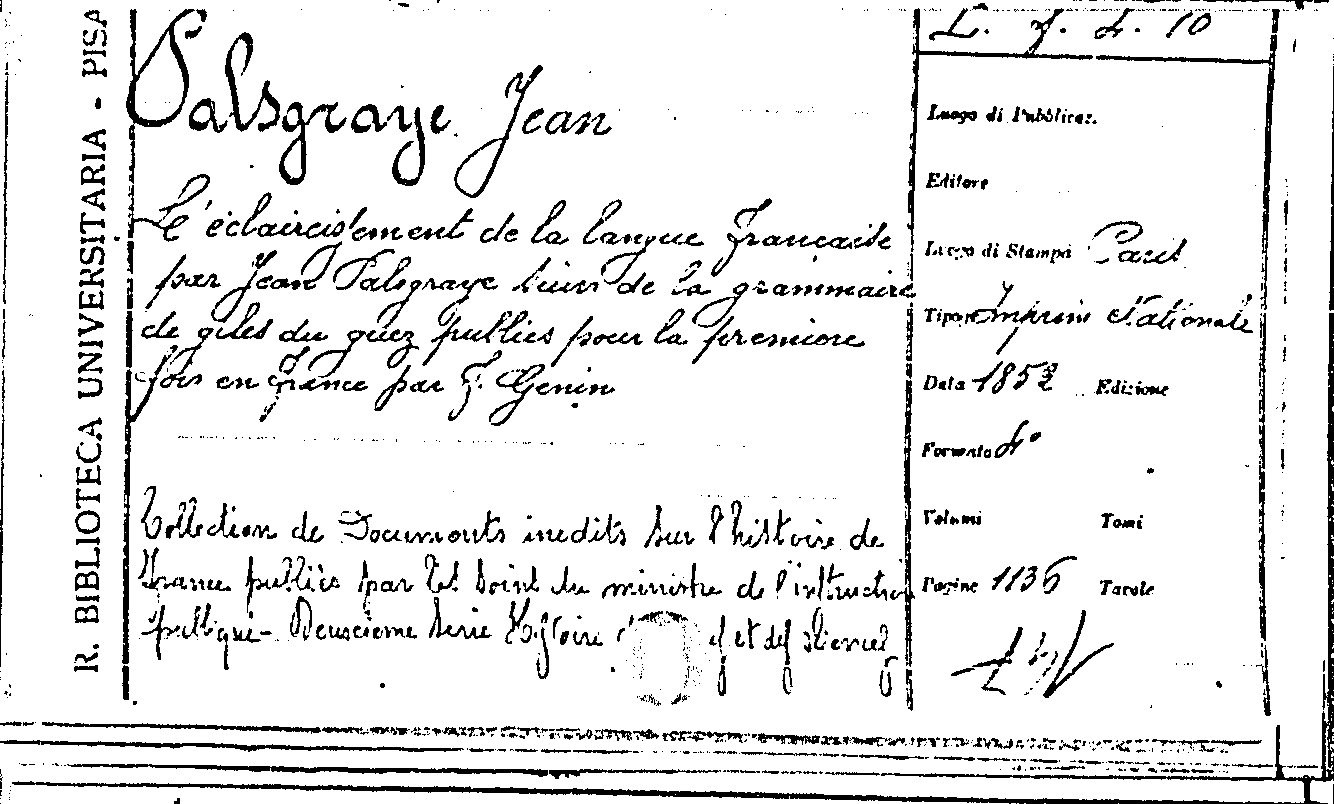 R. BIBLIOTECA UNIVERSITARIA - PISA
L. f. 4. 10
Palsgraye Jean
L'éclaircissement de la langue française
par Jean Palsgraye suivi de la grammaire
de giles du guez publiés pour la premiere
fois en france par F. Genin
Collection de Documents inedits sur l'histoire de
France publiés par les soins du ministre de l'instruction
publique - Deuxieme serie Histoire et des sciences
Luogo di Pubblicaz.
Editore
Luogo di Stampa Paris
Tipogr. Imprim. Nationale
Data 1852 Edizione
Formato 4°
Volumi Tomi
Pagine 1136 Tavole